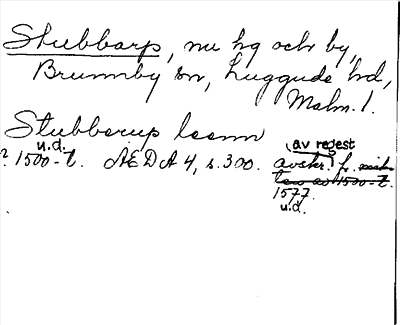 Stubbarp, nu hg och by,
Brunnby sn, Luggude hd,
Malm. l.
Stubberup leenn
u.d. (av regest
? 1500-t. ÆDA 4, s. 300. avskr. fr.
1500-t.
1577.
u.d.